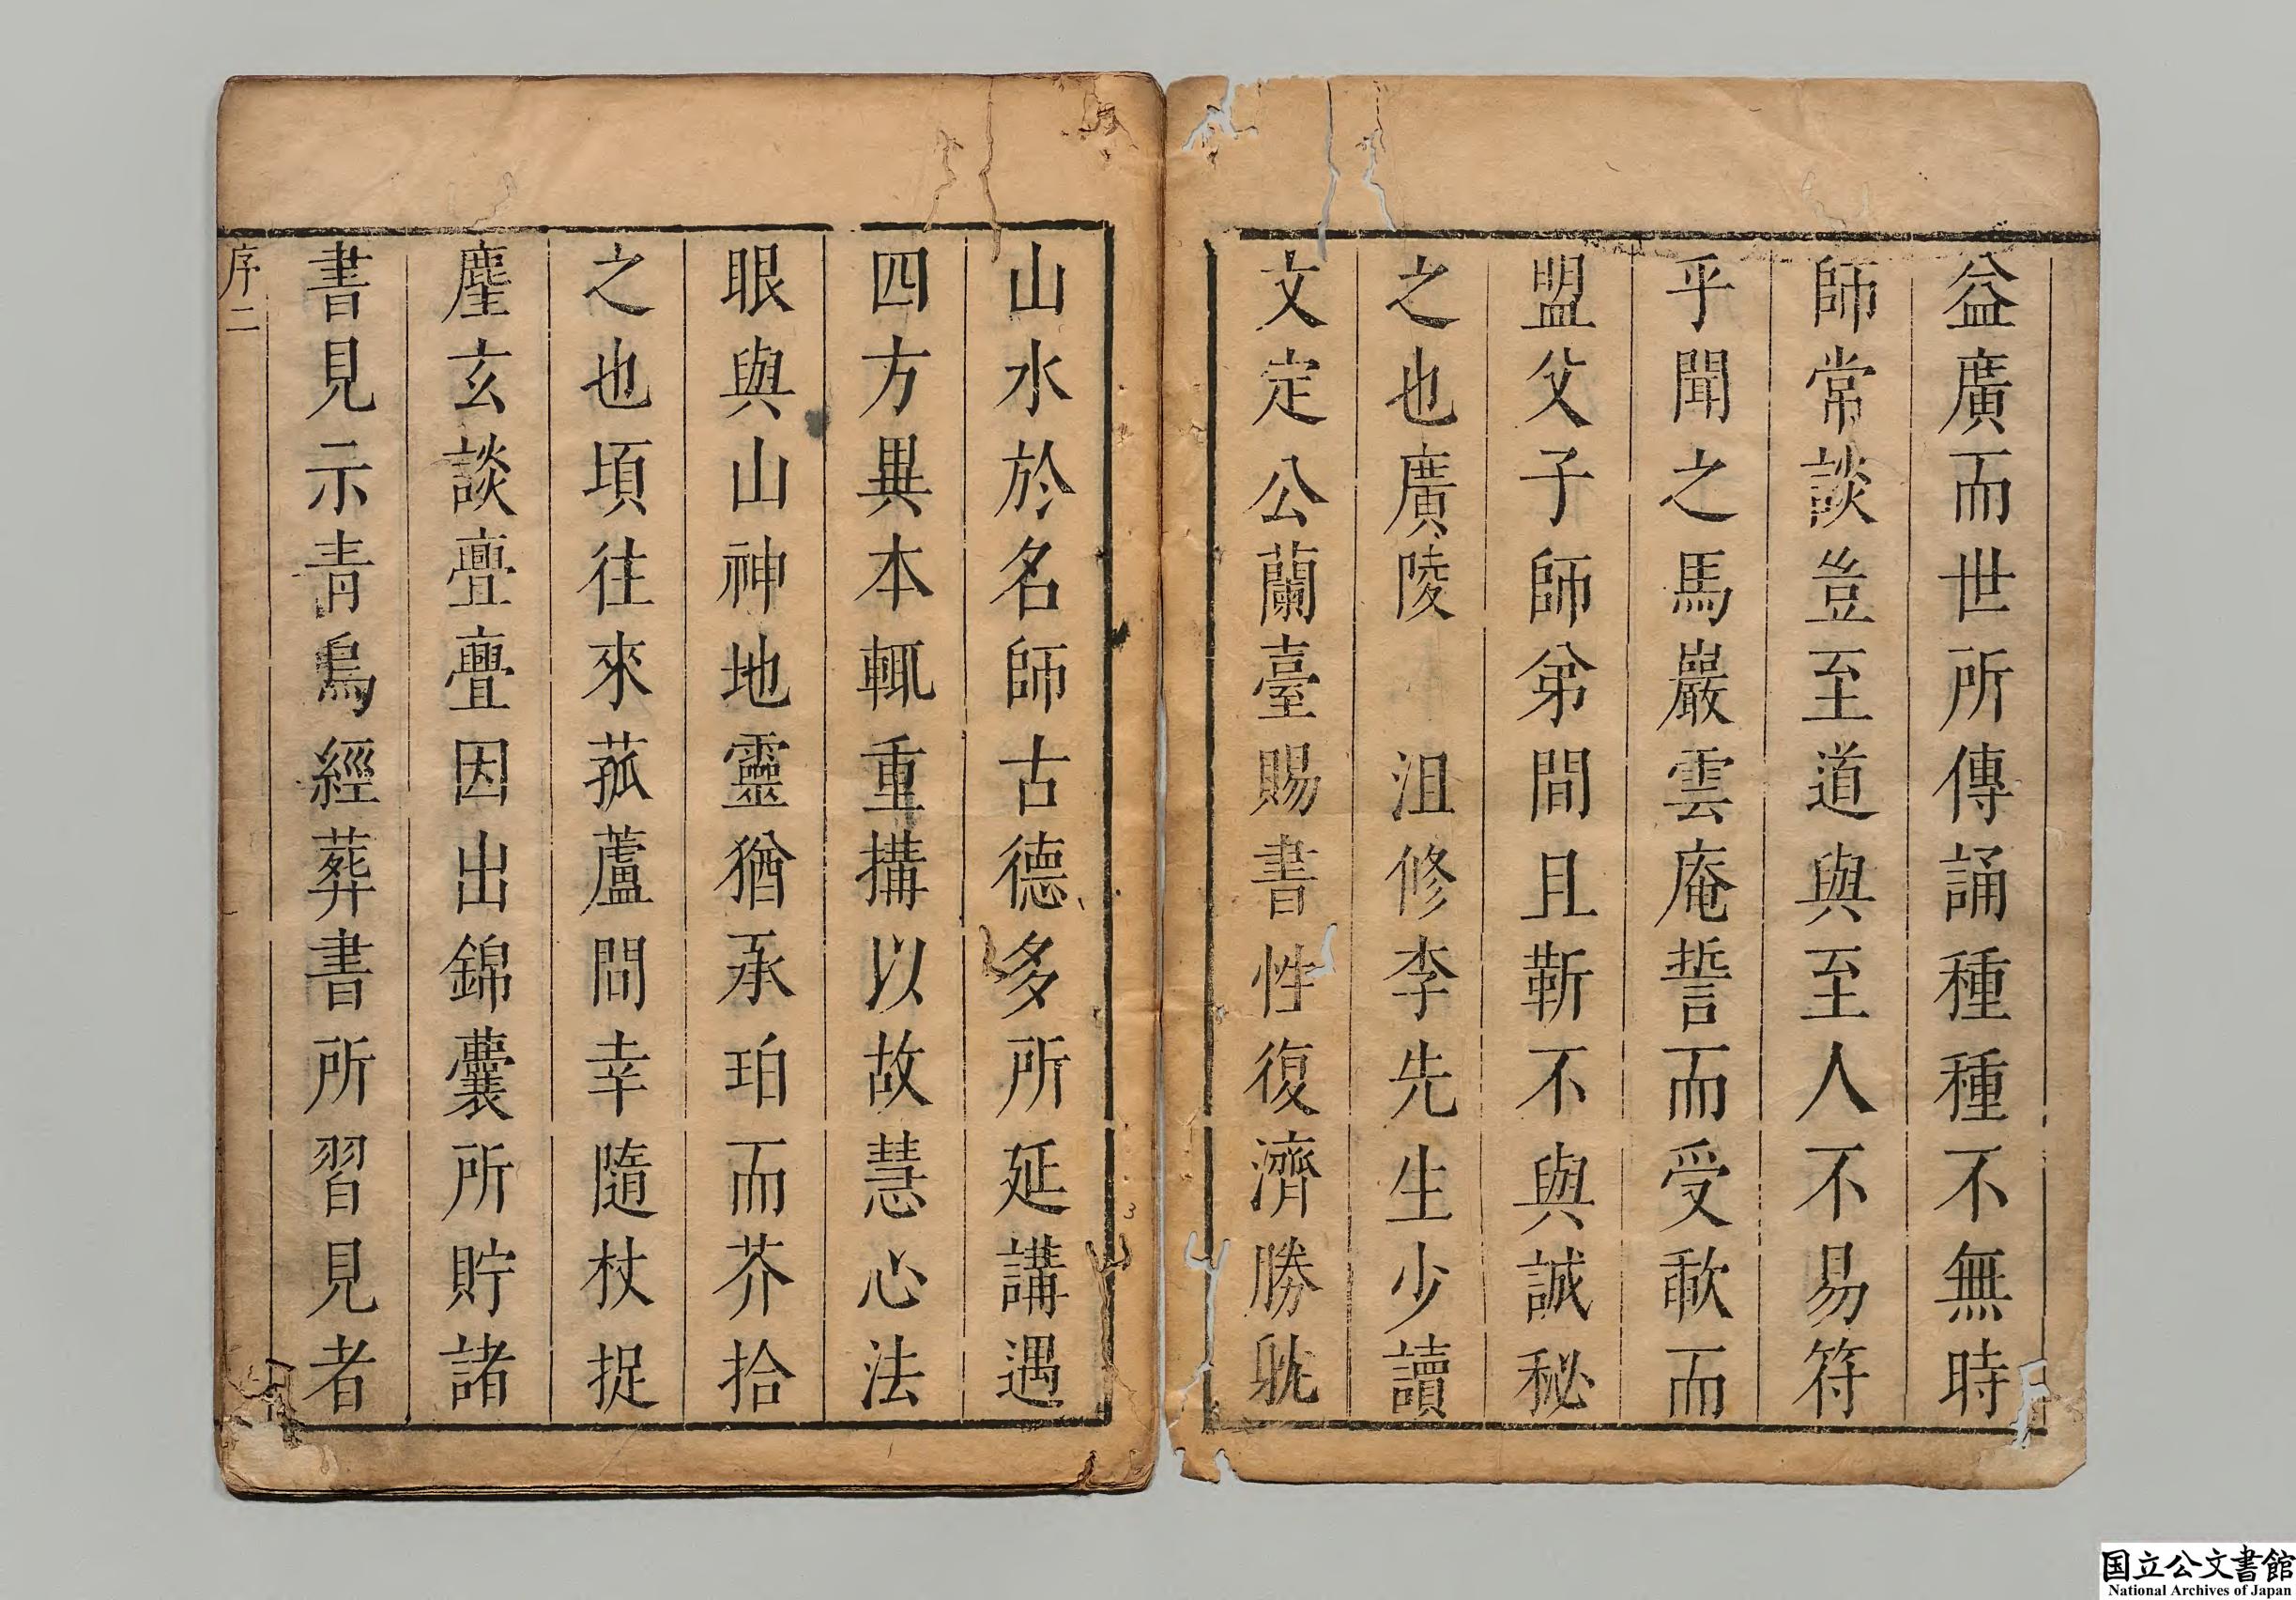 益廣而世所傳誦種種不無時
師常談豈至道與至人不易符
乎聞之馬巖雲庵誓而受歃而
盟父子師弟間且靳不與誠秘
之也廣陵 沮修李先生少讀
文定公蘭臺賜書性復濟勝躭
山水於名師古德多所延講遇
四方異本輒重搆以故慧心法
眼與山神地靈猶承珀而芥拾
之也頃往來菰蘆間幸隨杖捉
麈玄談亹亹因出錦囊所貯諸
書見示青烏經葬書所習見者
序二
国立公文書館
National Archives of Japan